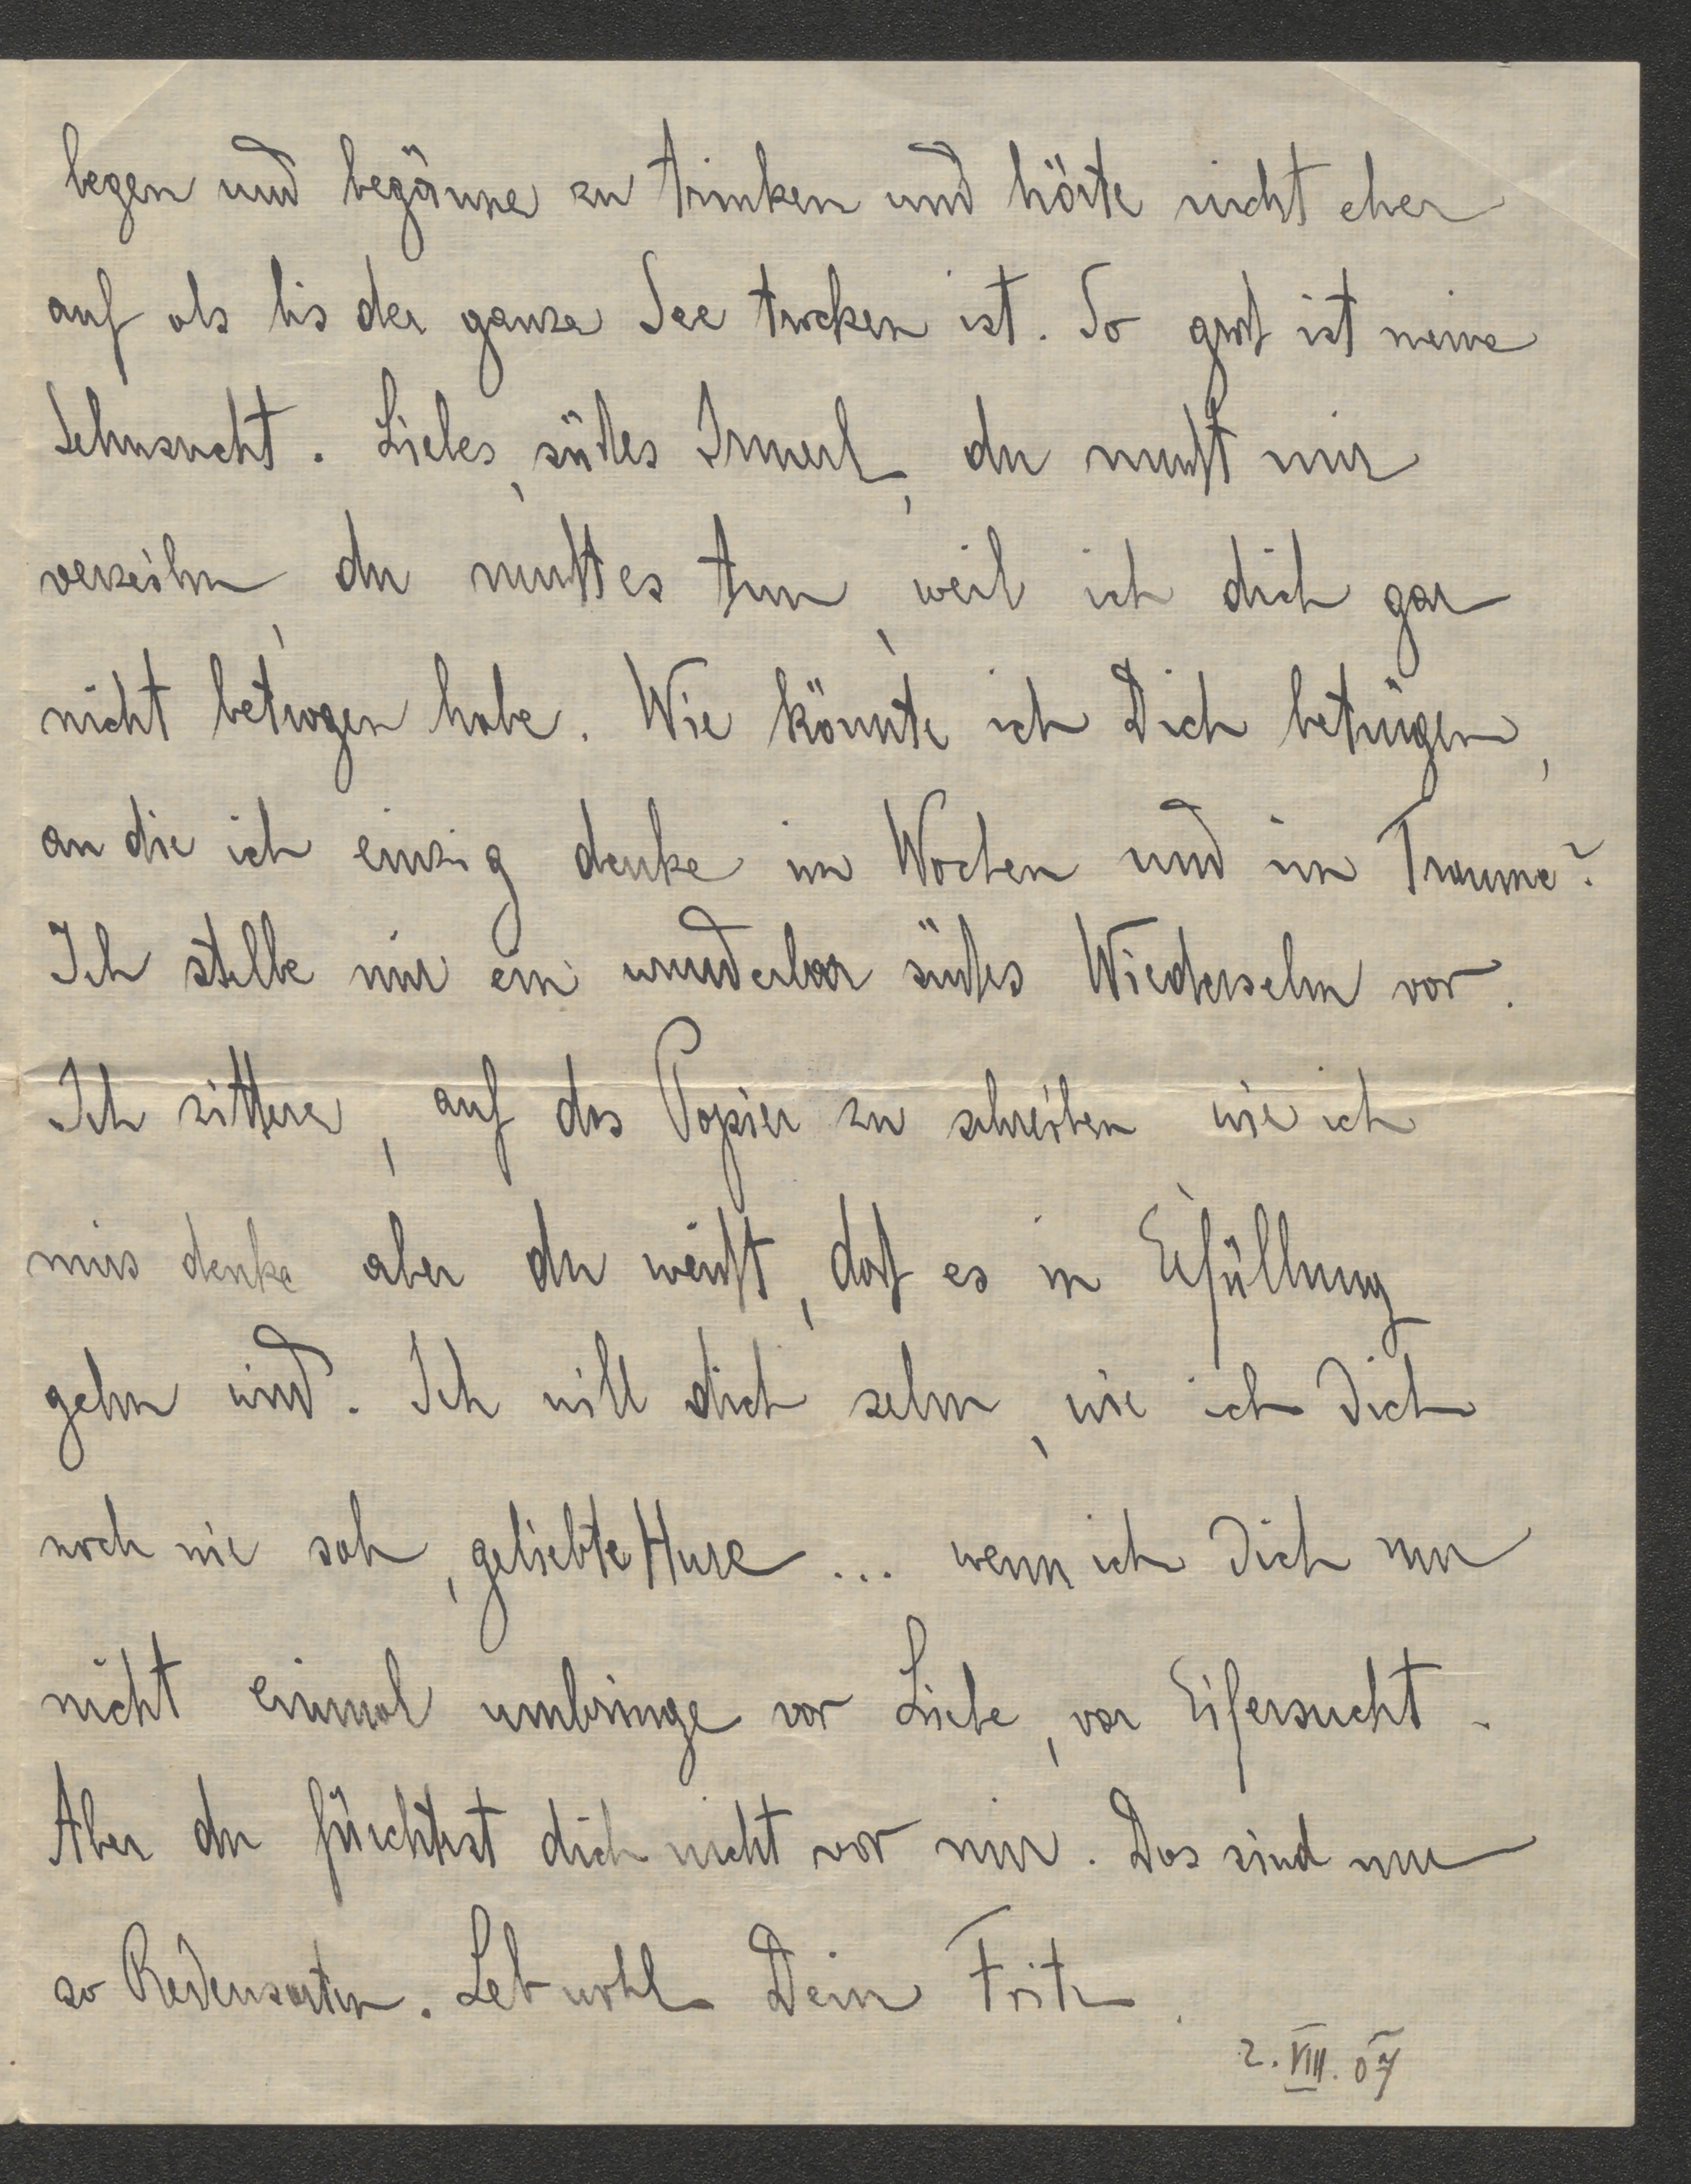 legen und begänne zu trinken und hörte nicht eher
auf als bis der ganze See trocken ist. So groß ist meine
Sehnsucht. Liebes, süßes Irmerl, du mußt mir
verzeihn, du mußt es tun, weil ich dich gar
nicht betrogen habe. Wie könnte ich Dich betrügen,
an die ich einzig denke im Wachen und im Traume?
Ich stelle mir ein wunderbar süßes Wiedersehn vor.
Ich zittere, auf das Papier zu schreiben wie ich
mirs denke aber du weißt, daß es in Erfüllung
gehn wird. Ich will dich sehn, wie ich Dich
noch nie sah, geliebte Hure ... wenn ich Dich nur
nicht einmal umbringe vor Liebe, vor Eifersucht.
Aber du fürchtest dich nicht vor mir. Das sind nur
so Redensarten. Leb wohl Dein Fritz.
2. VIII. 07